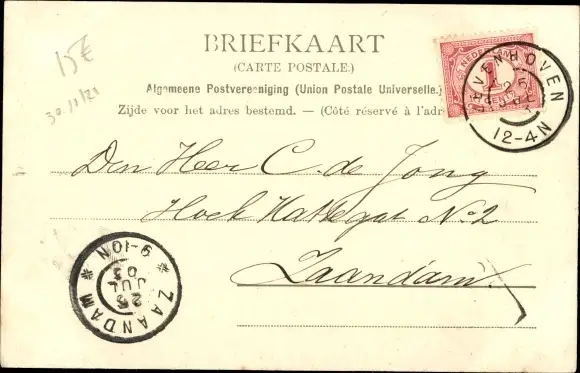 BRIEFKAART
(CARTE POSTALE.)
Algemeene Postvereeniging (Union Postale Universelle.)
Zijde voor het adres bestemd. — (Côté réservé à l'adr
15€
30/11/21
NEDERLAND
1
CENT
VENHOVEN
12-4N
Den Heer C. de Jong
Hoek Kattegat No 2
Zaandam.
ZAANDAM
9-10N
25
JUL
03